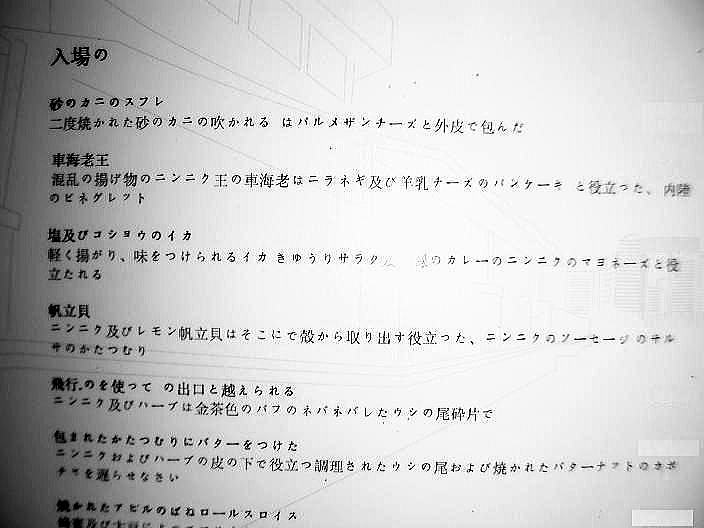 入場の
砂のカニのスフレ
二度焼かれた砂のカニの吹かれる はパルメザンチーズと外皮で包んだ
車海老王
混乱の揚げ物のニンニク王の車海老はニラネギ及び羊乳チーズのパンケーキ と役立った、内陸
のビネグレット
塩及びコショウのイカ
軽く揚がり、味をつけられるイカ きゅうりサラダ のカレーのニンニクのマヨネーズと役
立たれる
帆立貝
ニンニク及びレモン帆立貝はそこにで殻から取り出す役立った、ニンニクのソーセージのサル
サのかたつむり
飛行.のを使って の出口と越えられる
ニンニク及びハーブは金茶色のパフのネバネバしたウシの尾砕片で
包まれたかたつむりにバターをつけた
ニンニクおよびハーブの皮の下で役立つ調理されたウシの尾および焼かれたバターナットのカボ
チャを遅らせなさい
焼かれたアヒルのばねロールスロイス